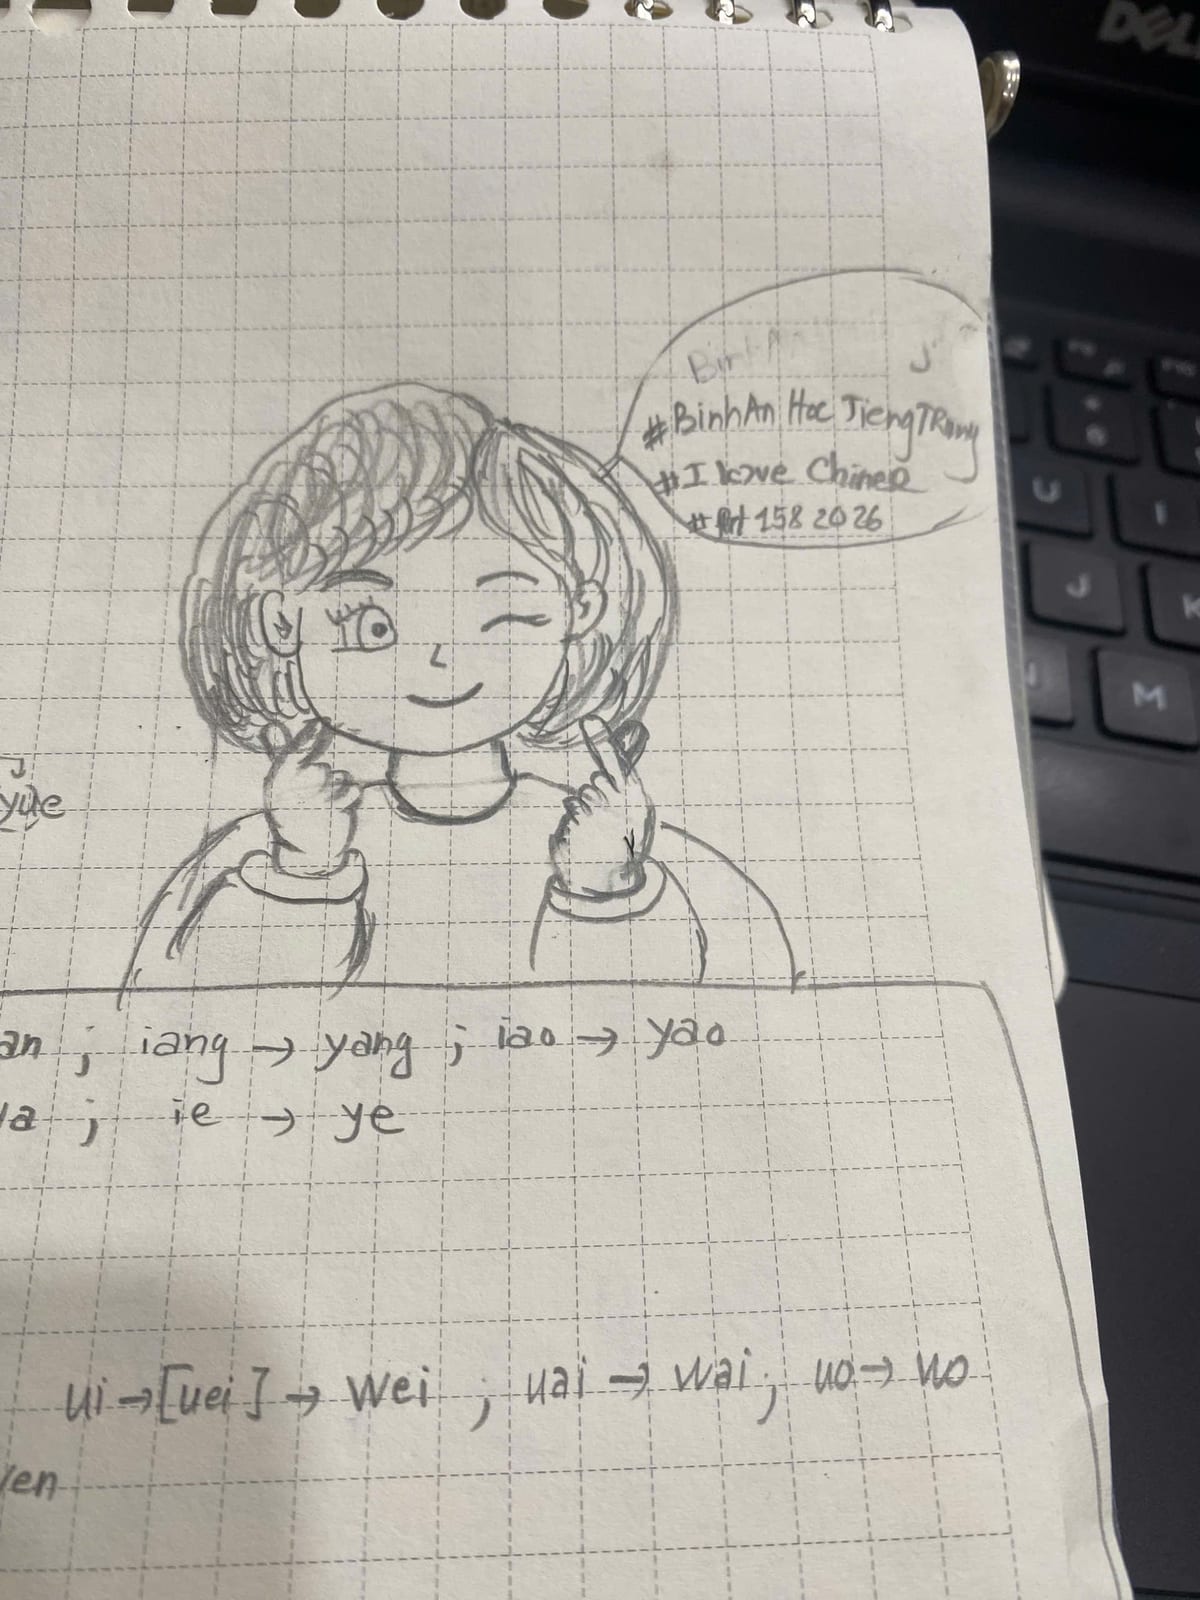 DELL
#BinhAn Hoc TiengTRung
#I love Chinese
158 2026
yüe
an ; iang → yang ; iao → yao
ya ; ie → ye
ui → [uei] → wei ; uai → wai; uo → wo
en
U
I
J
K
M